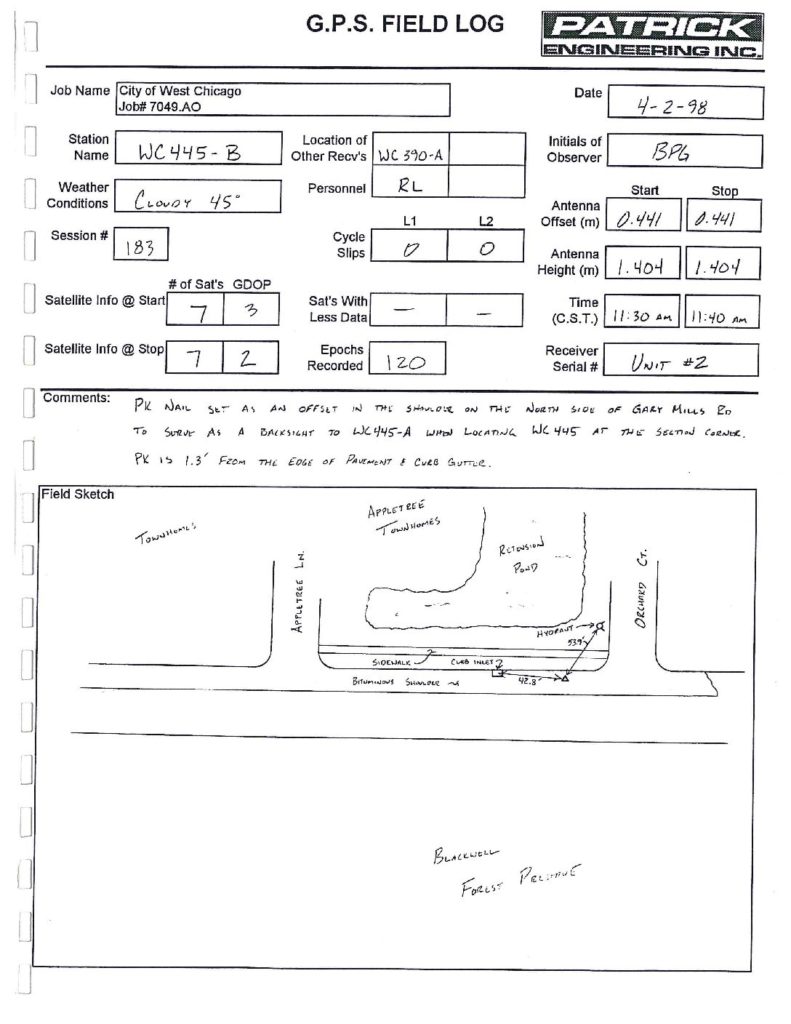 G.P.S. FIELD LOG
PATRICK
ENGINEERING INC.
Job Name City of West Chicago
Job# 7049.AO
Date 4-2-98
Station Name WC445-B
Location of Other Recv's WC390-A
Initials of Observer BPG
Weather Conditions CLOUDY 45°
Personnel RL
Start Stop
Antenna Offset (m) 0.441 0.441
Session # 183
L1 L2
Cycle Slips 0 0
Antenna Height (m) 1.404 1.404
# of Sat's GDOP
Satellite Info @ Start 7 3
Sat's With Less Data — —
Time (C.S.T.) 11:30 AM 11:40 AM
Satellite Info @ Stop 7 2
Epochs Recorded 120
Receiver Serial # UNIT #2
Comments:
PK NAIL SET AS AN OFFSET IN THE SHOULDER ON THE NORTH SIDE OF GARY MILLS RD
TO SERVE AS A BACKSIGHT TO WC445-A WHEN LOCATING WC445 AT THE SECTION CORNER.
PK IS 1.3' FROM THE EDGE OF PAVEMENT & CURB GUTTER.
Field Sketch
TOWNHOMES
APPLETREE
TOWNHOMES
RETENSION
POND
APPLETREE LN.
ORCHARD CT.
HYDRANT
53.9'
SIDEWALK
CURB INLET
BITUMINOUS SHOULDER
42.8'
BLACKWELL
FOREST PRESERVE